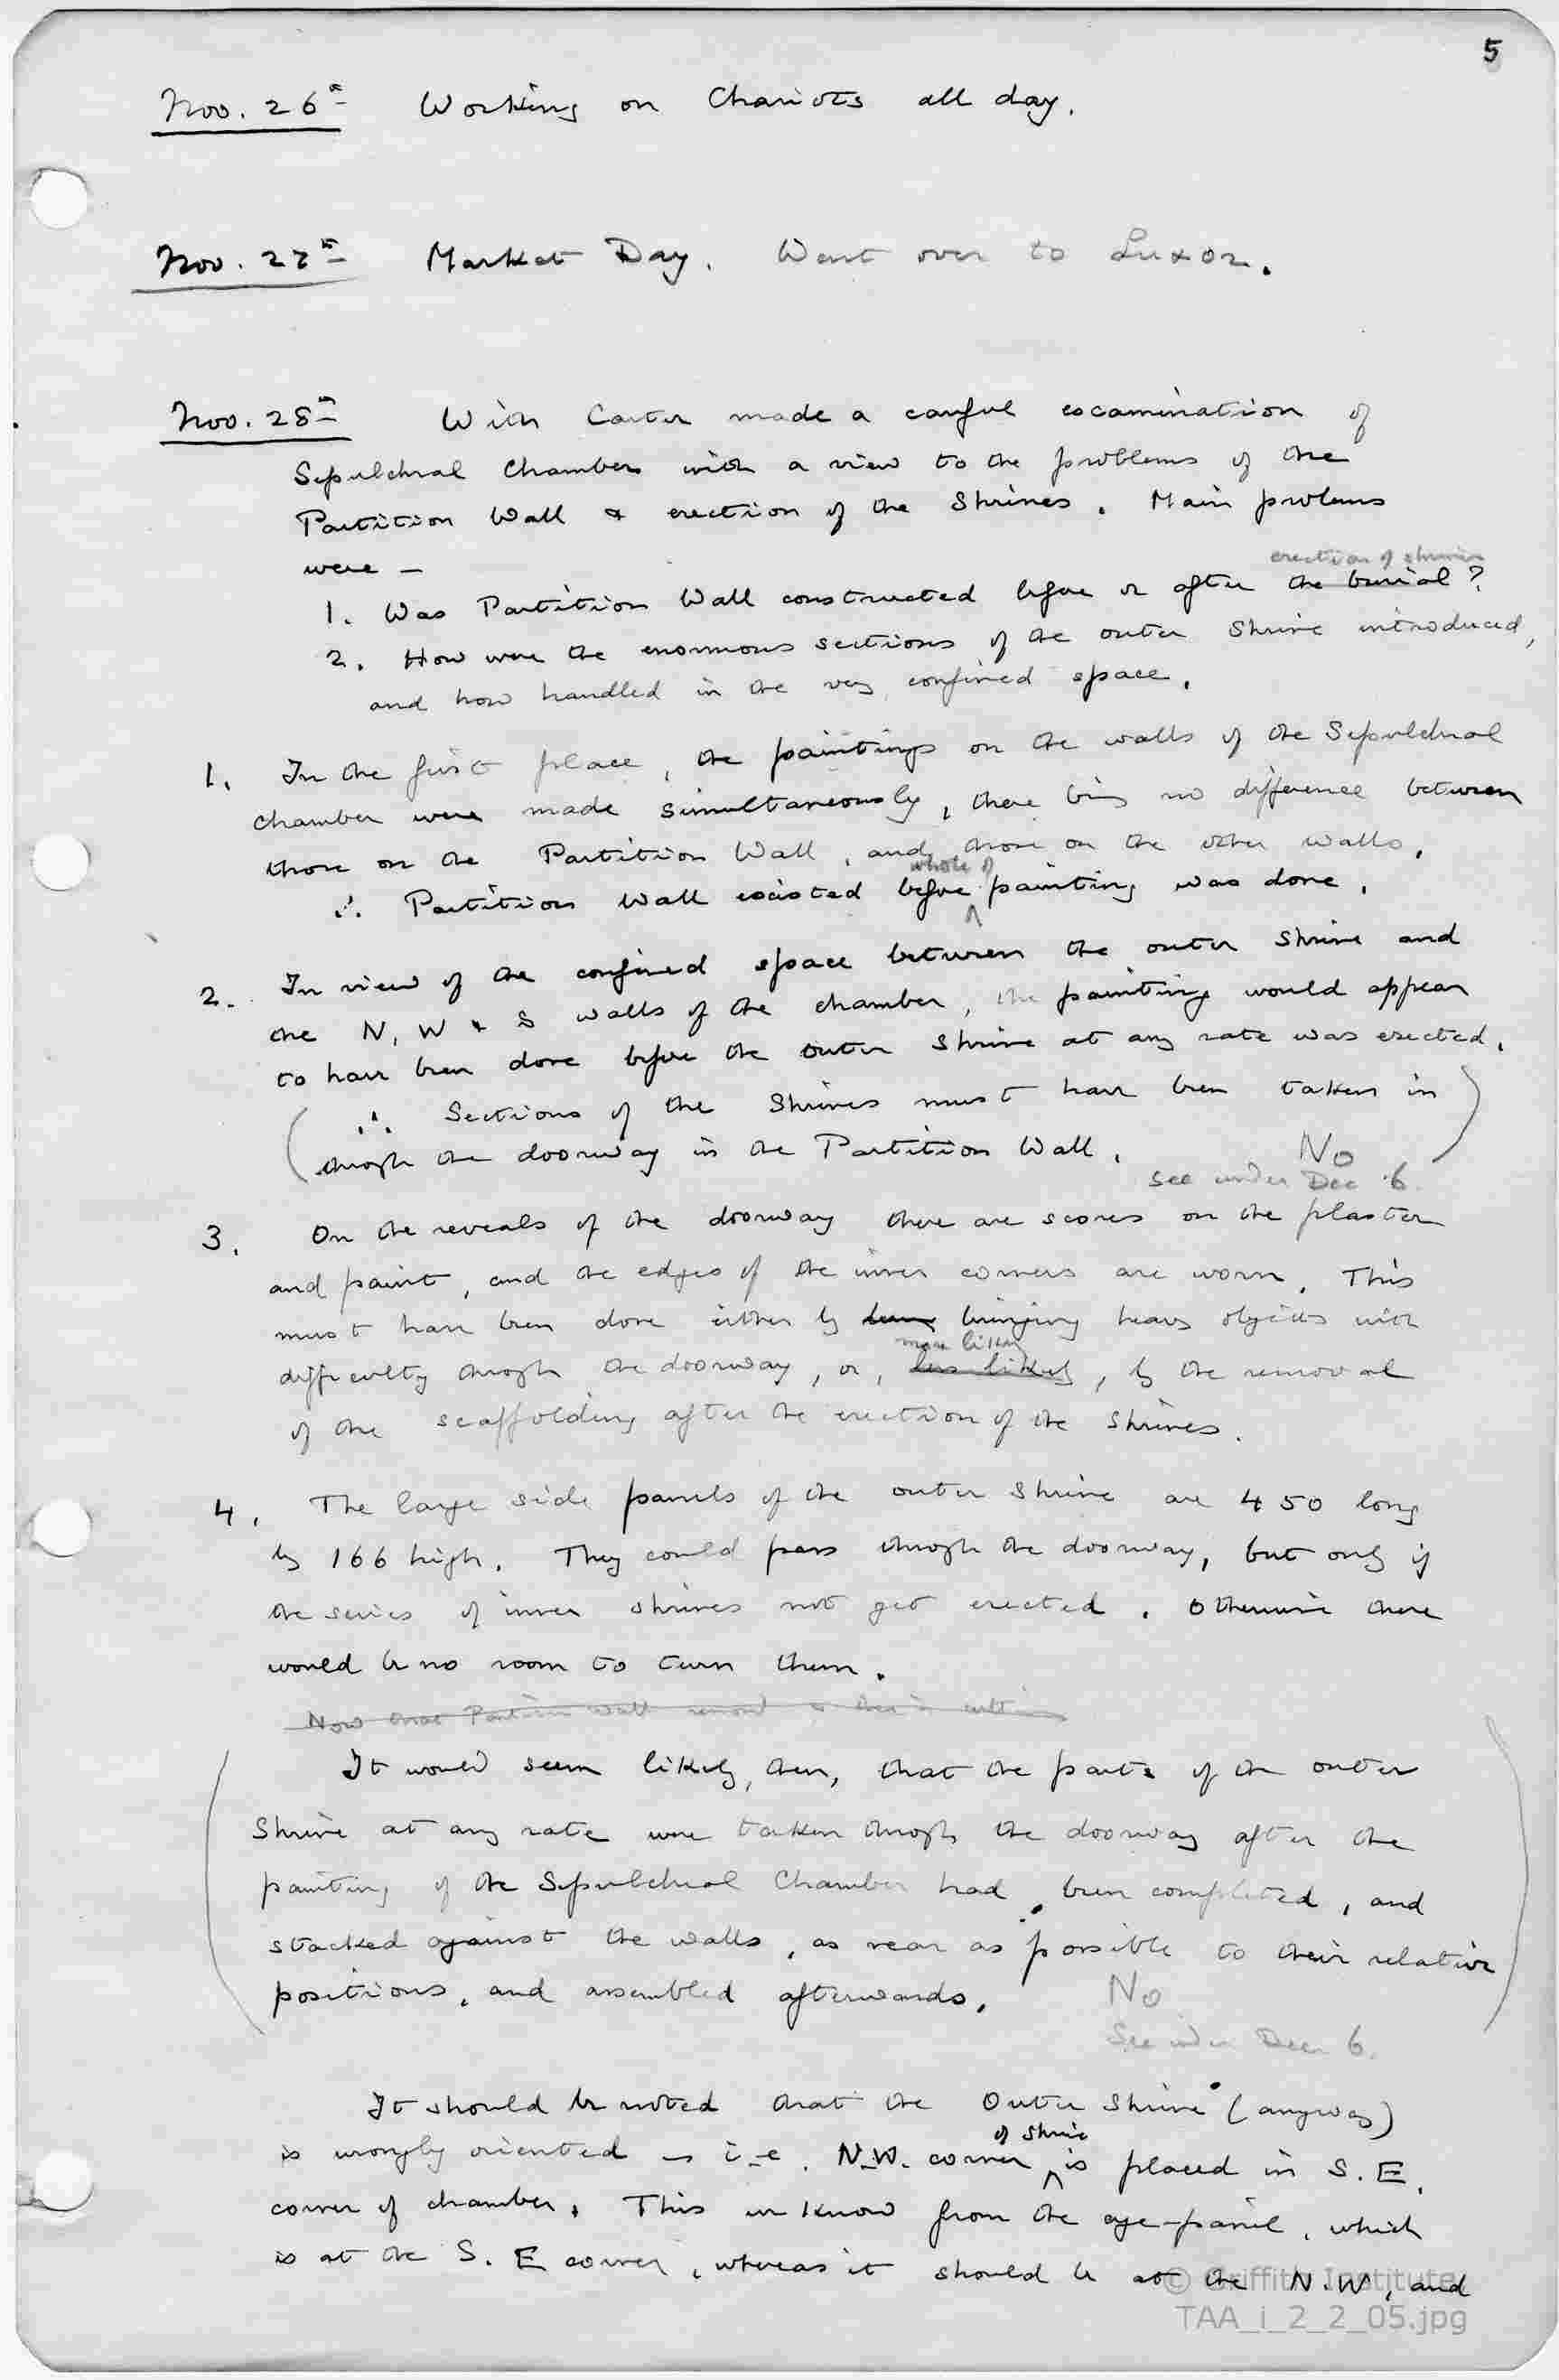 5
Nov. 26th Working on Chariots all day.
Nov. 27th Market Day. Went over to Luxor.
Nov. 28th With Carter made a careful examination of
Sepulchral Chamber with a view to the problems of the
Partition Wall & erection of the Shrines. Main problems
were —
erection of shrines
1. Was Partition Wall constructed before or after the burial?
2. How were the enormous sections of the outer Shrine introduced,
and how handled in the very confined space.
1. In the first place, the paintings on the walls of the Sepulchral
chamber were made simultaneously, there being no difference between
those on the Partition Wall, and those on the other walls.
whole of
∴ Partition Wall existed before ^ painting was done.
2. In view of the confined space between the outer Shrine and
the N, W & S walls of the chamber, the painting would appear
to have been done before the outer Shrine at any rate was erected.
(∴ Sections of the Shrines must have been taken in
through the doorway in the Partition Wall.) No
See under Dec 6.
3. On the reveals of the doorway there are scores on the plaster
and paint, and the edges of the inner corners are worn. This
must have been done either by bringing heavy objects with
more likely
difficulty through the doorway, or, less likely, by the removal
of the scaffolding after the erection of the Shrines.
4. The large side panels of the outer Shrine are 450 long
by 166 high. They could pass through the doorway, but only if
the series of inner shrines not yet erected. Otherwise there
would be no room to turn them.
Now that Partition Wall
(It would seem likely, then, that the parts of the outer
Shrine at any rate were taken through the doorway after the
painting of the Sepulchral Chamber had been completed, and
stacked against the walls, as near as possible to their relative
positions, and assembled afterwards.) No
See under Dec 6.
It should be noted that the Outer Shrine (anyway)
of Shrine
is wrongly oriented – i.e. N.W. corner ^ is placed in S.E.
corner of chamber. This we know from the eye-panel, which
is at the S.E corner, whereas it should be at the N.W, and
© Griffith Institute
TAA_i_2_2_05.jpg